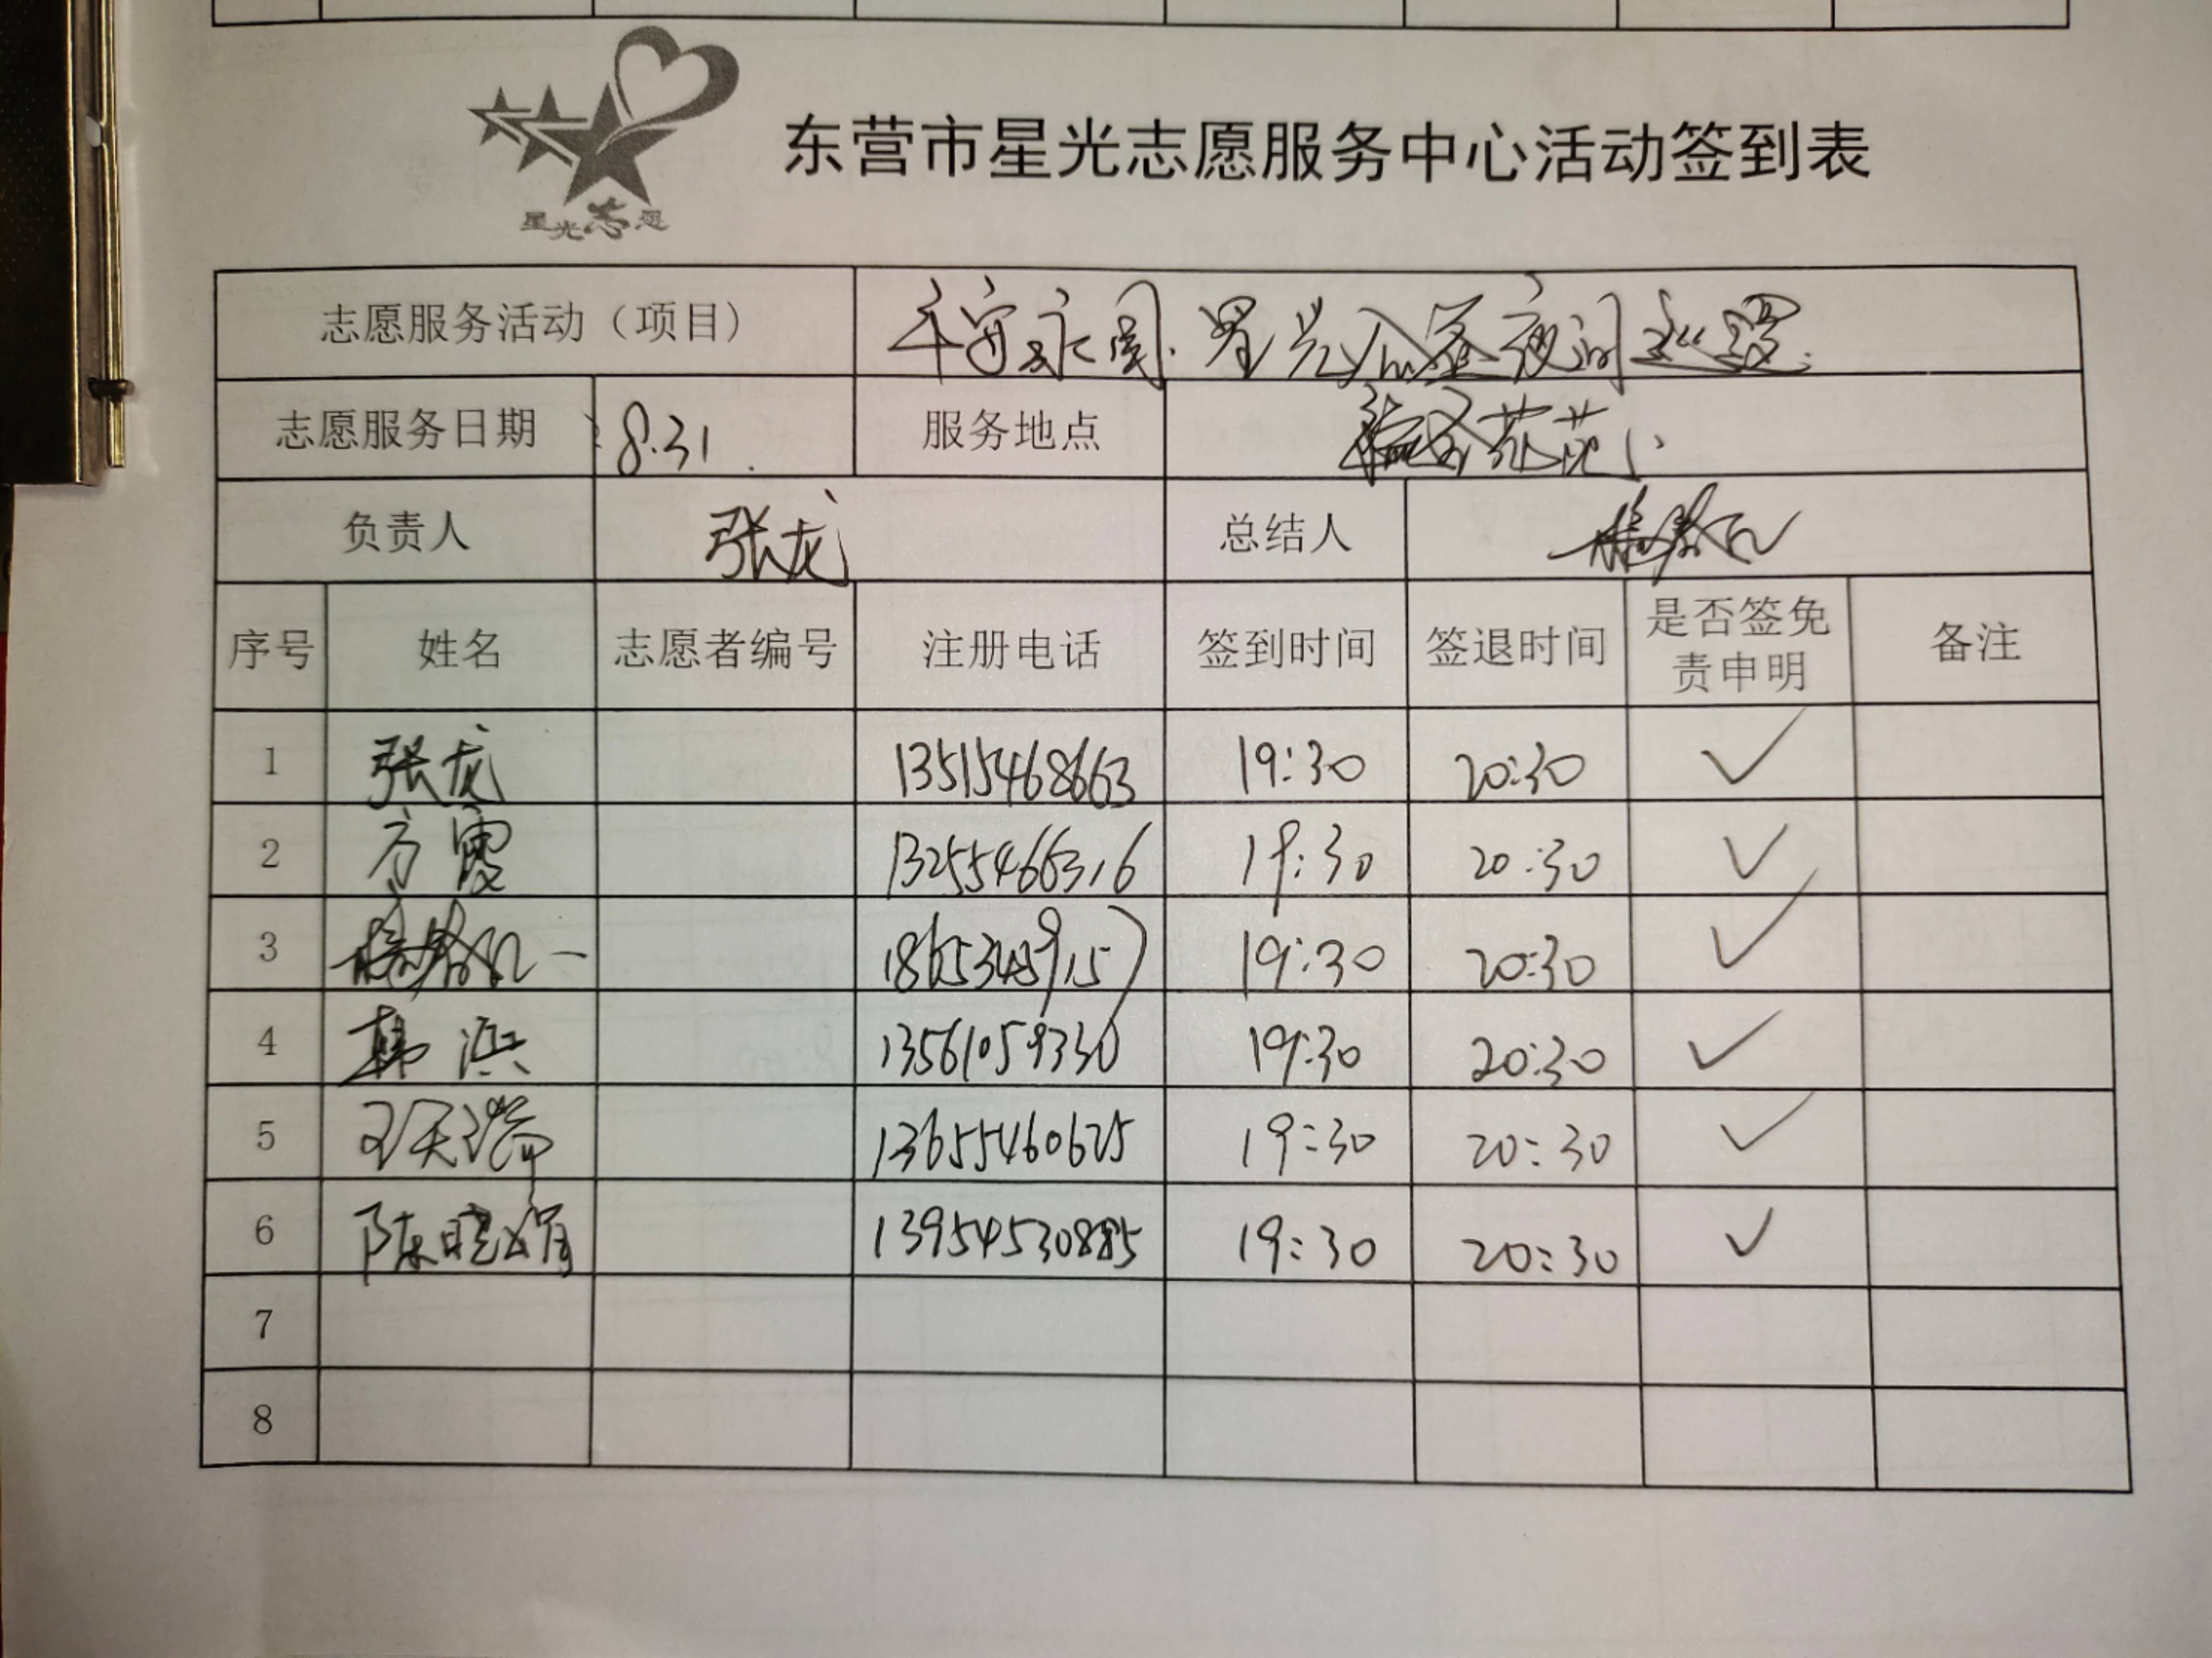 星光志愿
东营市星光志愿服务中心活动签到表
志愿服务活动（项目） 平安 星光 夜间巡逻
志愿服务日期 8.31 服务地点
负责人 张龙 总结人
序号 姓名 志愿者编号 注册电话 签到时间 签退时间 是否签免责申明 备注
1 张龙 13515468663 19:30 20:30 ✓
2 方霞 13255466316 19:30 20:30 ✓
3 19:30 20:30 ✓
4 韩滨 13561059330 19:30 20:30 ✓
5 王天瑞 13655460625 19:30 20:30 ✓
6 陈晓娟 13954530885 19:30 20:30 ✓
7
8